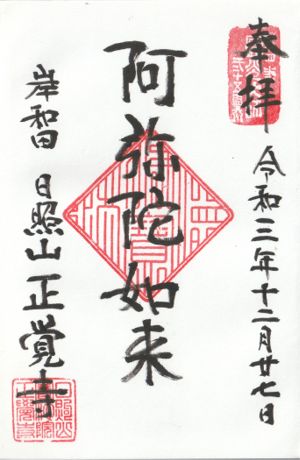 奉拝
令和三年十二月廿七日
阿弥陀如来
岸和田 日照山 正覚寺